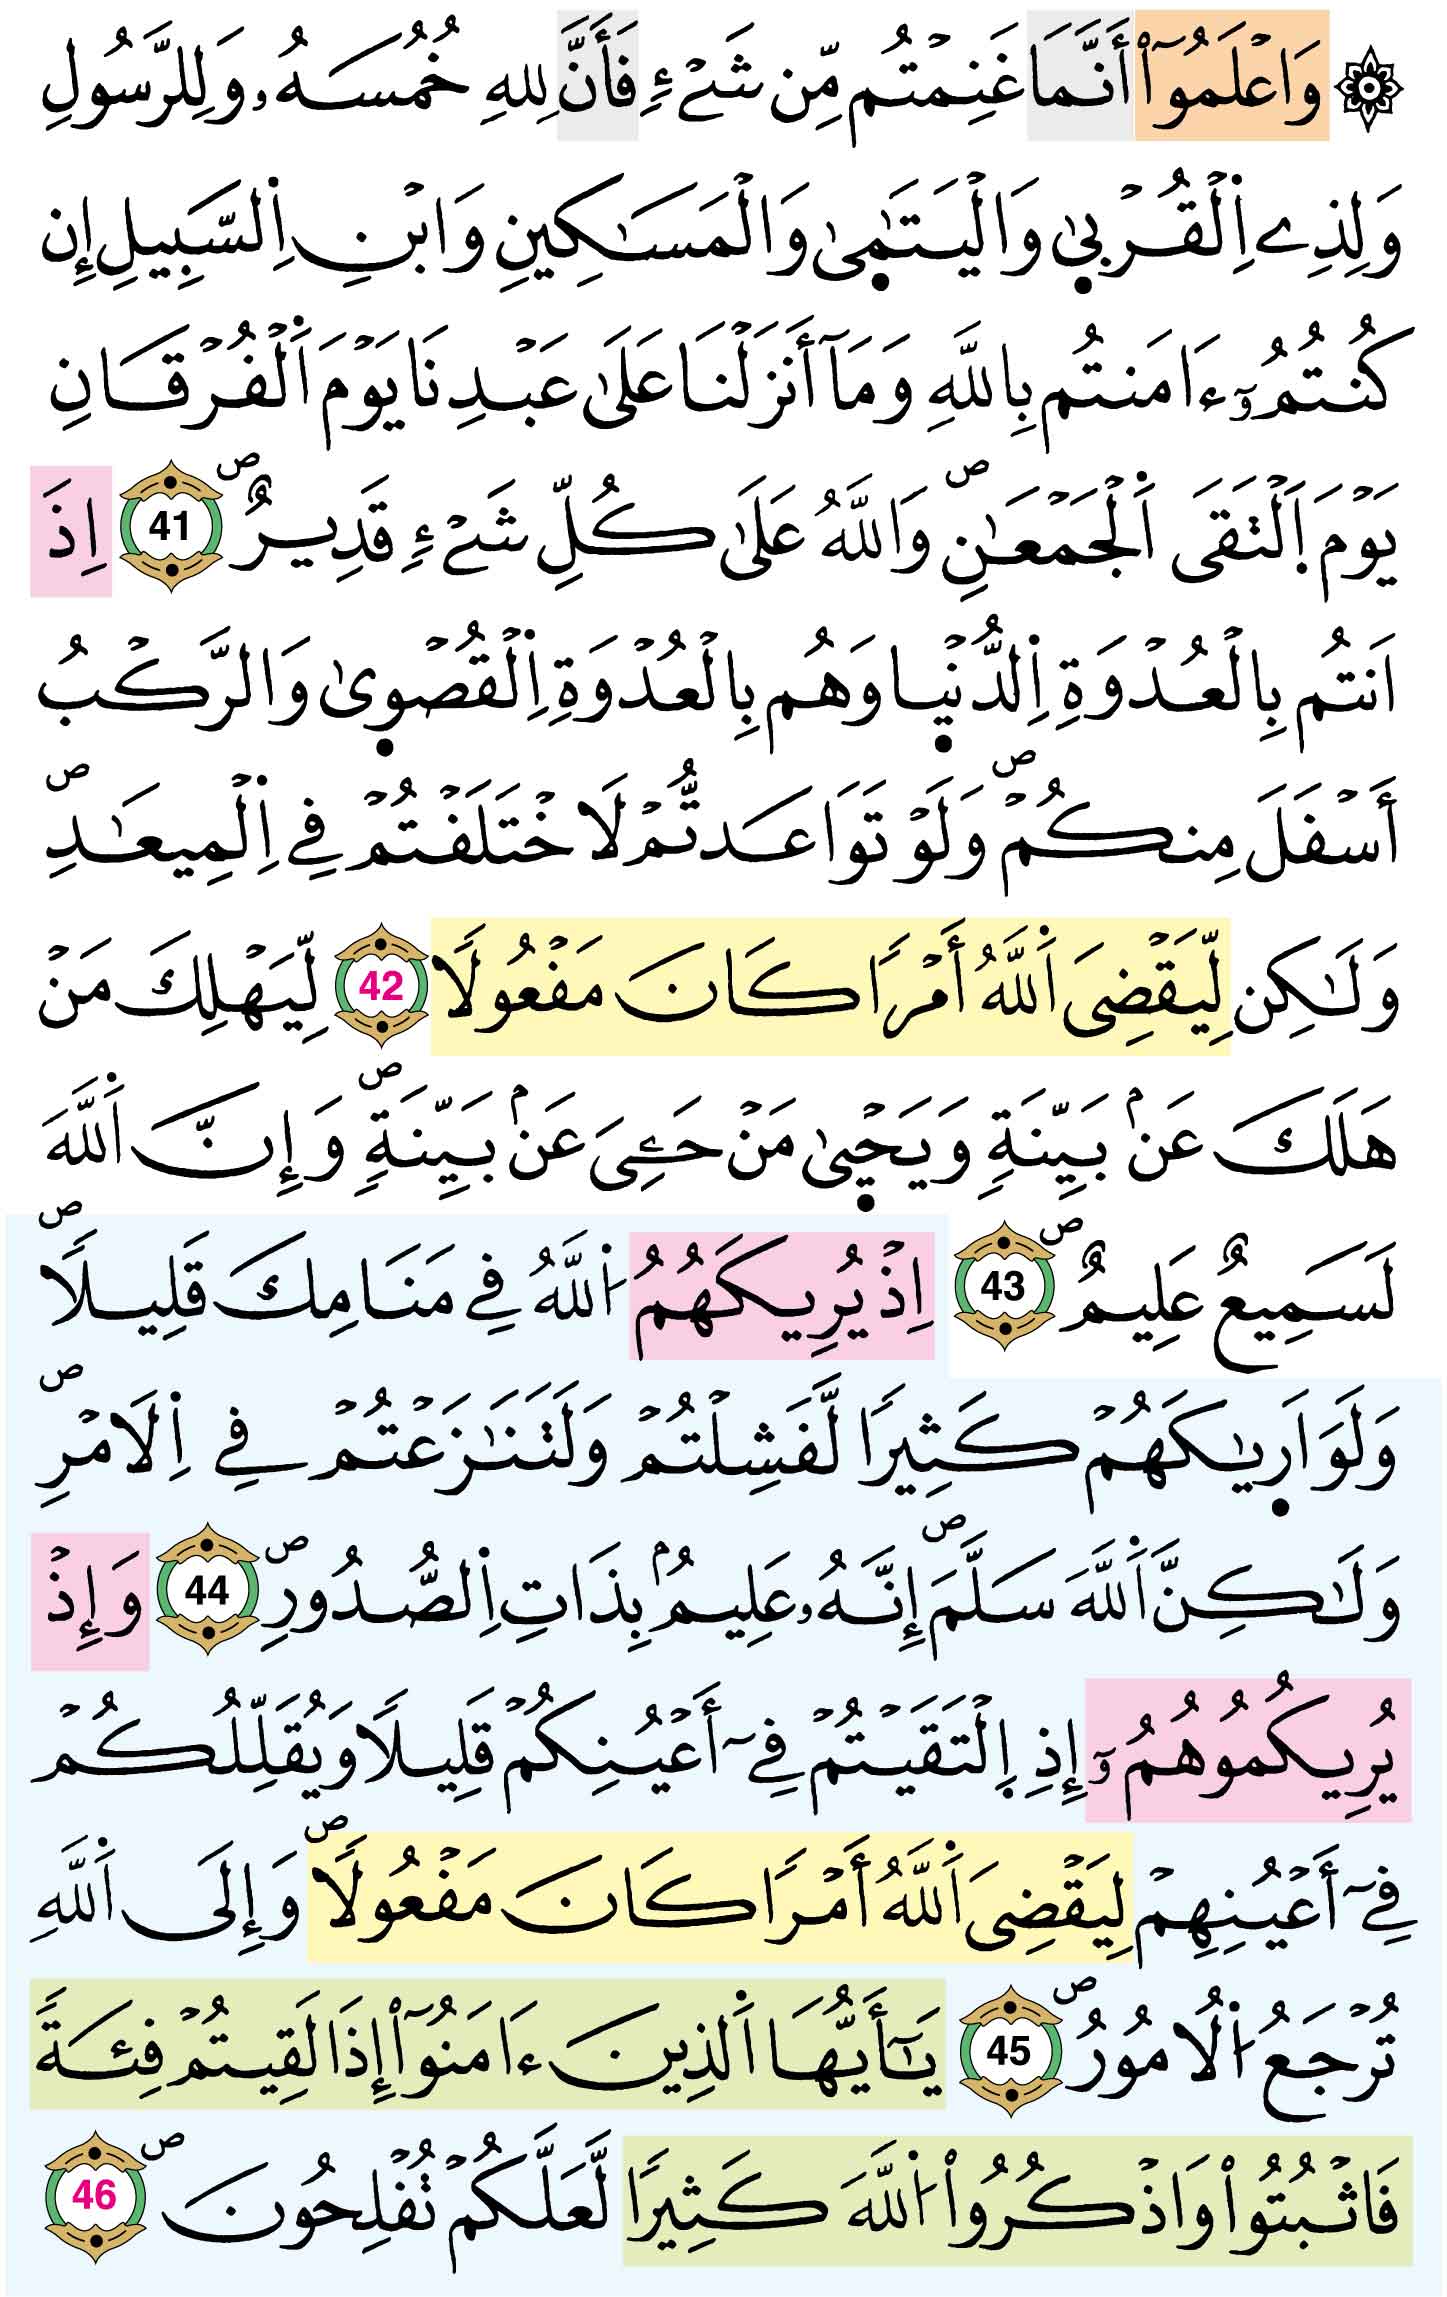 ۞ وَاعْلَمُوٓاْ أَنَّمَا غَنِمْتُم مِّن شَےْءٍ فَأَنَّ لِلهِ خُمُسَهُۥ وَلِلرَّسُولِ
وَلِذِے اِ۬لْقُرْبۭيٰ وَالْيَتَٰمۭىٰ وَالْمَسَٰكِينِ وَابْنِ اِ۬لسَّبِيلِ إِن
كُنتُمُۥٓ ءَامَنتُم بِاللَّهِ وَمَآ أَنزَلْنَا عَلَىٰ عَبْدِنَا يَوْمَ اَ۬لْفُرْقَانِ
يَوْمَ اَ۪لْتَقَى اَ۬لْجَمْعَٰنِۖ وَاللَّهُ عَلَىٰ كُلِّ شَےْءٍ قَدِيرٌۖ 41 اِذَ
اَنتُم بِالْعُدْوَةِ اِ۬لدُّنْيۭا وَهُم بِالْعُدْوَةِ اِ۬لْقُصْوۭىٰ وَالرَّكْبُ
أَسْفَلَ مِنكُمْۖ وَلَوْ تَوَاعَدتُّمْ لَاخْتَلَفْتُمْ فِے اِ۬لْمِيعَٰدِۖ
وَلَٰكِن لِّيَقْضِىَ اَ۬للَّهُ أَمْرًا كَانَ مَفْعُولًا 42 لِّيَهْلِكَ مَنْ
هَلَكَ عَنۢ بَيِّنَةٍ وَيَحْيۭىٰ مَنْ حَيِىَ عَنۢ بَيِّنَةٍۖ وَإِنَّ اَ۬للَّهَ
لَسَمِيعٌ عَلِيمٌۖ 43 اِذْ يُرِيكَهُمُ اُ۬للَّهُ فِے مَنَامِكَ قَلِيلًاۖ
وَلَوَ اَرۭيٰكَهُمْ كَثِيرًا لَّفَشِلْتُمْ وَلَتَنَٰزَعْتُمْ فِے اِ۬لَامْرِۖ
وَلَٰكِنَّ اَ۬للَّهَ سَلَّمَۖ إِنَّهُۥ عَلِيمُۢ بِذَاتِ اِ۬لصُّدُورِۖ 44 وَإِذْ
يُرِيكُمُوهُمُۥٓ إِذِ اِ۪لْتَقَيْتُمْ فِےٓ أَعْيُنِكُمْ قَلِيلًا وَيُقَلِّلُكُمْ
فِےٓ أَعْيُنِهِمْ لِيَقْضِىَ اَ۬للَّهُ أَمْرًا كَانَ مَفْعُولًاۖ وَإِلَى اَ۬للَّهِ
تُرْجَعُ اُ۬لُامُورُۖ 45 يَٰٓأَيُّهَا اَ۬لذِينَ ءَامَنُوٓاْ إِذَا لَقِيتُمْ فِئَةً
فَاثْبُتُواْ وَاذْكُرُواْ اُ۬للَّهَ كَثِيرًا لَّعَلَّكُمْ تُفْلِحُونَۖ 46